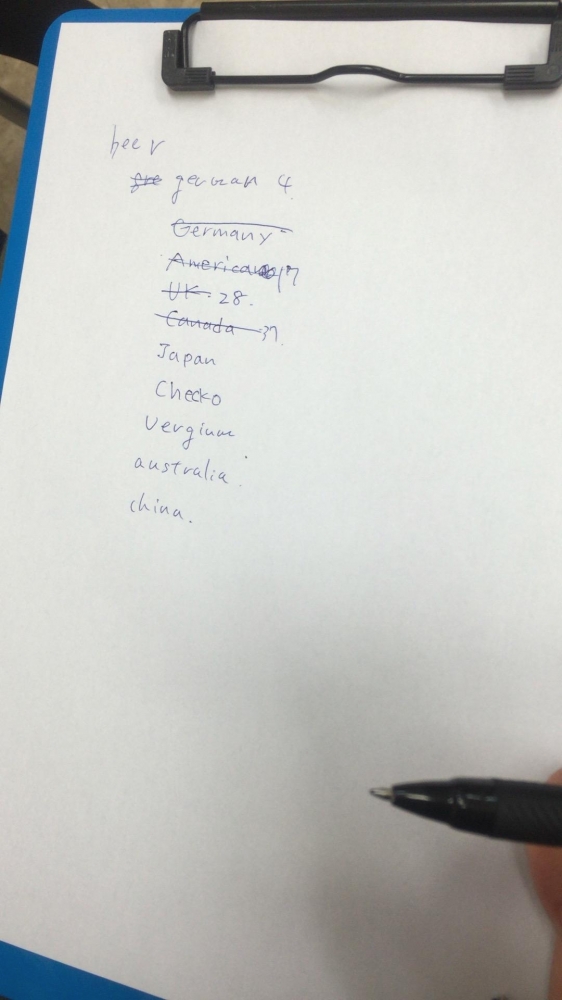 beer
german 4
Germany
American 17
UK 28.
Canada 37.
Japan
Checko
Vergium
australia.
china.